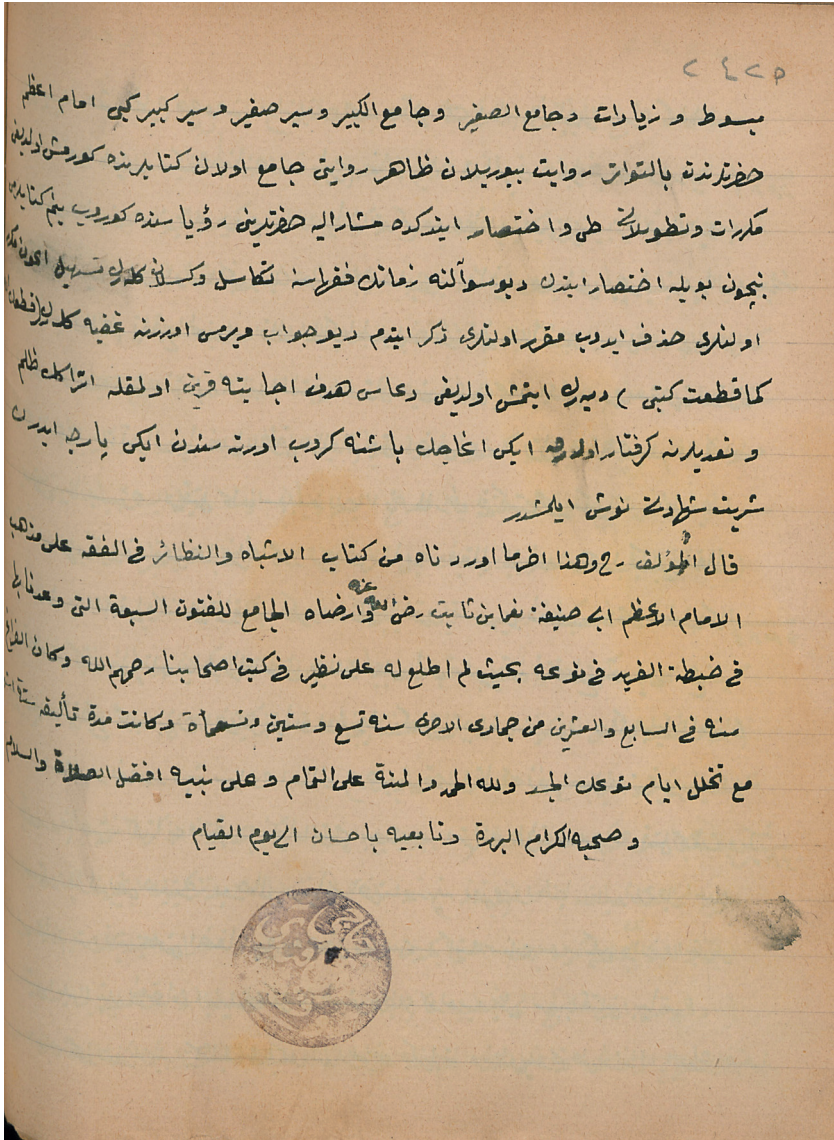 ٢٤٢٥
مبسوط و زيادات و جامع الصغير و جامع الكبير و سير صغير و سير كبير كبى امام اعظم
حضرتلرندن بالتواتر روايت بيوريلان ظاهر روايتى جامع اولان كتابلرنده كورمش اولديغى
مكررات و تطويلاتى طى و اختصار ايتدكده مشار اليه حضرتلرينى رؤيا سنده كوروب بنم كتابلرمى
نيچون بويله اختصار ايتدك ديو سوآلنه زمانك فقهاسنه تكاسل و كسلان كلدرك تسهيل ايچون
اولنلرى حذف ايدوب مقرر اولنلرى ذكر ايتدم ديو جواب ويرمسى اوزرينه غضبه كلدرك قطعك
كما قطعت كتبى ) ديرك ايتمش اولديغى دعاسى هدف اجابته قرين اولمقله اتراكك ظلم
و تعديلرنه گرفتار اولدرق ايكى اغاجك باشنه كروب اورته سندن ايكى پارچه ايدرك
شربت شهادتى نوش ايلمشدر
قال المؤلف رح و هذا اخر ما اوردناه من كتاب الاشباه والنظائر فى الفقه على مذهب
الامام الاعظم ابى حنيفة نعمان بن ثابت رضى الله عنه وارضاه الجامع للفنون السبعة التى وعدنا بها
فى خطبة الفريد فى نوعه بحيث لم اطلع له على نظير فى كتب اصحابنا رحمهم الله وكان الفراغ
منه فى السابع والعشرين من جمادى الاخرى سنه تسع وستين وتسعمأة وكانت مدة تأليفه ستة
مع تخلل ايام توعك الجسد ولله الحمد والمنة على التمام وعلى نبيه افضل الصلاة والسلام
و صحبه الكرام البررة وتابعيه باحسان الى يوم القيام